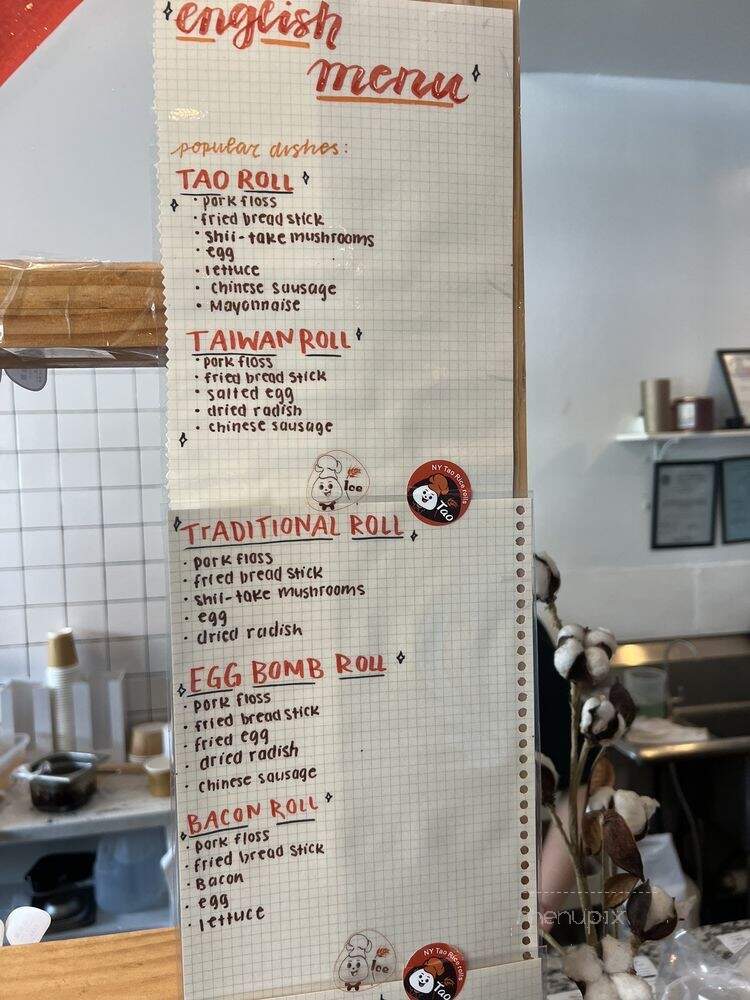 english
menu
popular dishes:
TAO ROLL
• pork floss
• fried bread stick
• shii-take mushrooms
• egg
• lettuce
• chinese sausage
• Mayonnaise
TAIWAN ROLL
• pork floss
• fried bread stick
• salted egg
• dried radish
• chinese sausage
Ice
NY Tao Rice rolls
Tao
TrADITIONAL ROLL
• pork floss
• fried bread stick
• shii-take mushrooms
• egg
• dried radish
EGG BOMB ROLL
• pork floss
• fried bread stick
• fried egg
• dried radish
• chinese sausage
BACON ROLL
• pork floss
• fried bread stick
• Bacon
• egg
• lettuce
menupix
Ice
NY Tao Rice rolls
Tao